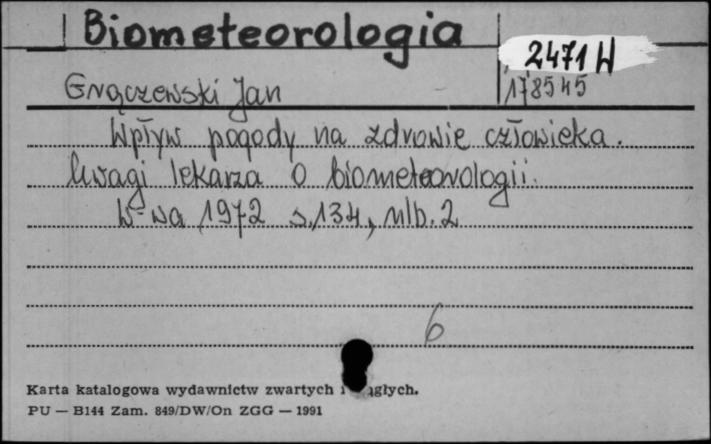 Biometeorologia
2471 W
Grączewski Jan
178545
Wpływ pogody na zdrowie człowieka.
Uwagi lekarza o biometeorologii.
W-wa 1972 s.134, nlb. 2
6
Karta katalogowa wydawnictw zwartych i
PU — B144 Zam. 849/DW/On ZGG — 1991